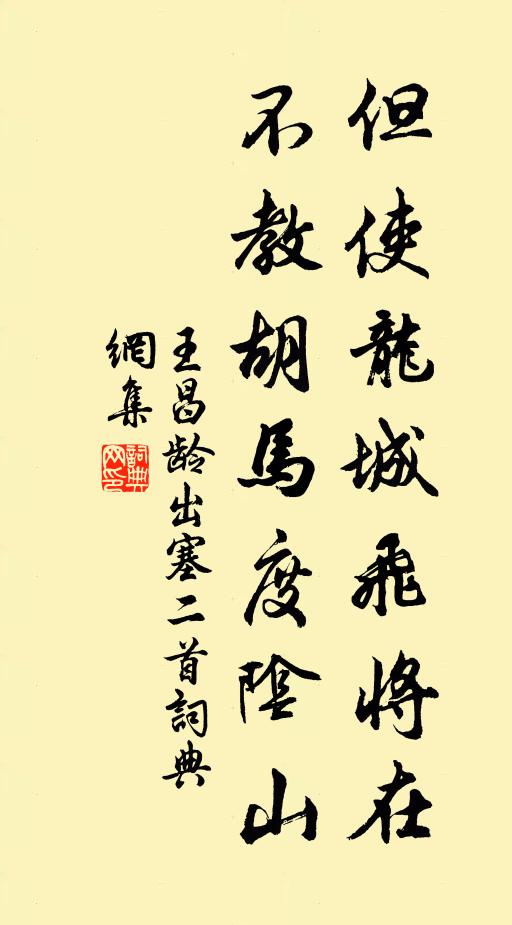 但使龍城飛將在
不教胡馬度陰山
王昌齡出塞二首詞典
網集
詞典
网印